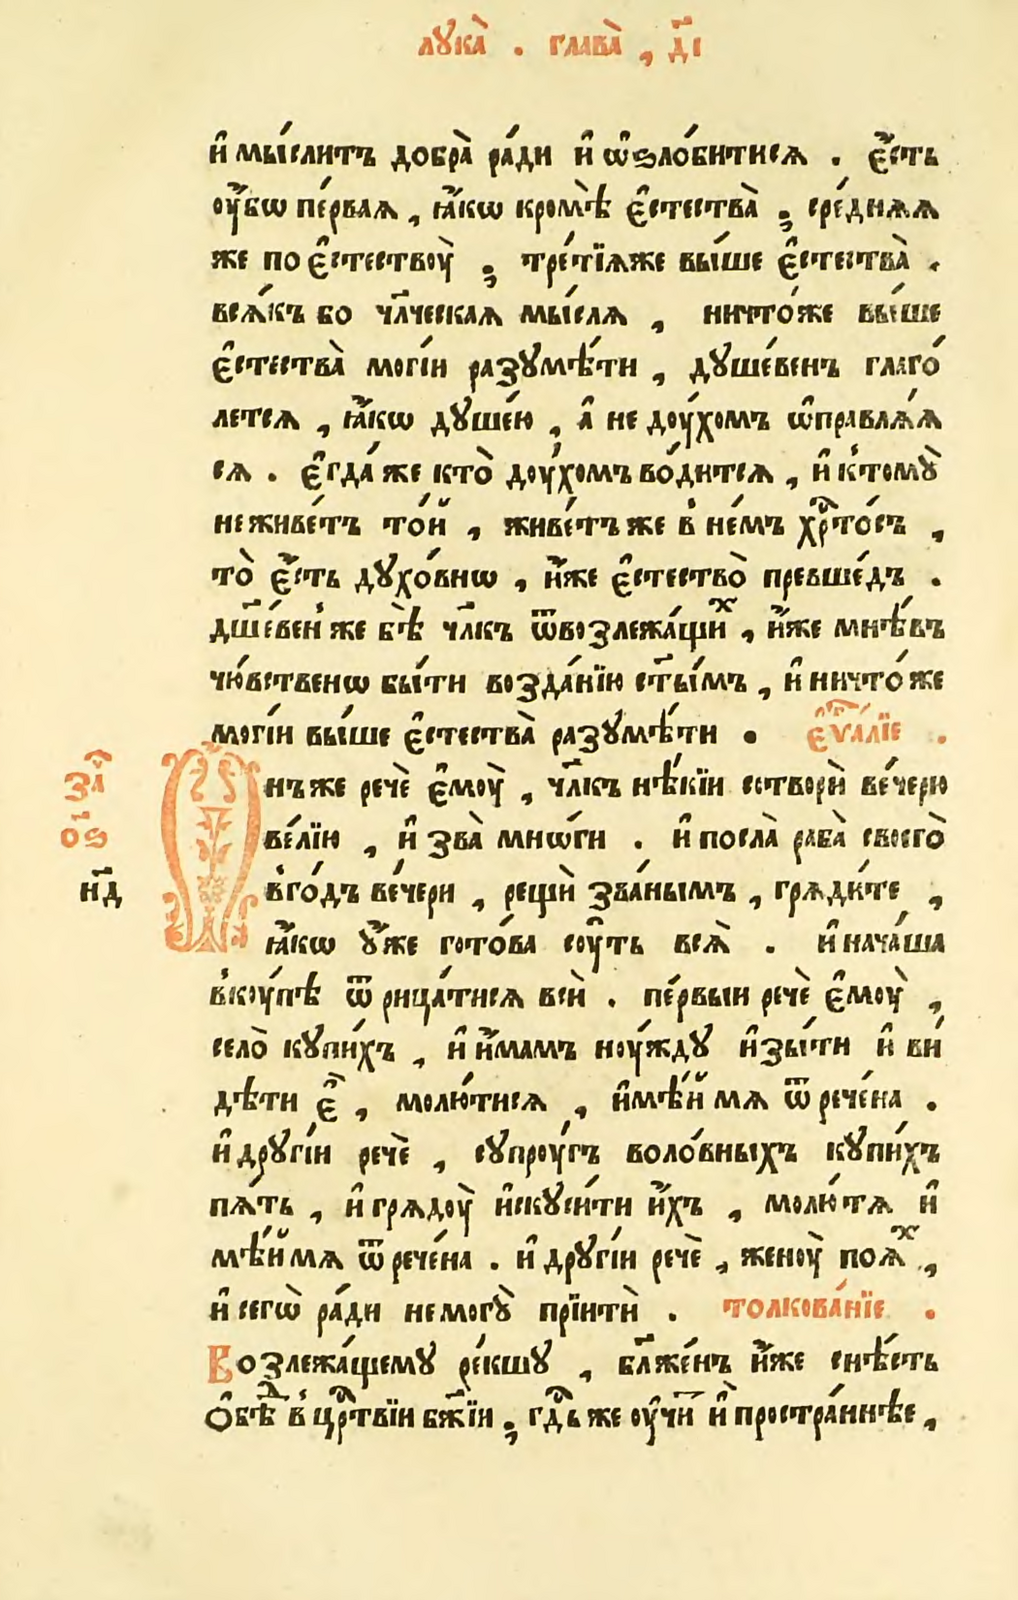 лꙋка̀ . глава̀ , д҃і
и҆ мы́слитъ добра̀ ра́ди и҆ ѡ҆ѕло́битисѧ . є҆́сть
оу҆́бѡ пе́рваѧ , ꙗ҆́кѡ кромѣ̀ є҆стества̀ ; сре́днѧѧ
же по є҆стествоу̀ ; тре́тїѧже вы́ше є҆стества̀ .
всѧ́къ бо чл҃ческаѧ мы́слѧ , ничто́же вы́ше
є҆стества̀ могі́и разꙋмѣ́ти , дꙋше́венъ глаго́
летсѧ , ꙗ҆́кѡ дꙋше́ю , а҆ не доу́хомъ ѡ҆правлѧ́ѧ
сѧ . є҆гда́ же кто̀ доу́хомъ во́дитсѧ , и҆ к̾томꙋ̀
не живе́тъ то́й , живе́тъ же в̾ не́мъ хрⷭ҇то́съ ,
то̀ є҆́сть дꙋхо́внѡ , и҆́же є҆стество̀ превше́дъ .
дш҃е́вен̾ же бѣ̀ чл҃къ ѿвозлежа́щиⷯ , и҆́же мнѣ́въ
чю́вственѡ бы́ти возда́нїю ст҃ы́мъ , и҆ ничто́же
могі́и вы́ше є҆стества̀ разꙋмѣ́ти . є҆ѵⷢ҇а́лїе .
за҄
о҃ѕ
н҃д
Ѻнъже речѐ є҆моу̀ , чл҃къ нѣ́кїи сотворѝ ве́черю
ве́лїю , и҆ зва̀ мнѡ́ги . и҆ посла̀ раба̀ своего̀
в̾го́дъ ве́чери , рещѝ зва́нымъ , грѧди́те ,
ꙗ҆́кѡ ꙋ҆́же гото́ва соу́ть всѧ̀ . и҆ нача́ша
в̾коу́пѣ ѿ рица́тисѧ всѝ . пе́рвыи речѐ є҆моу̀ ,
село̀ кꙋпи́хъ , и҆ и҆́мамъ ноу́ждꙋ и҆зы́ти и҆ ви́
дѣти є҆̀ , молю́тисѧ , и҆мѣ́й мѧ ѿ рече́на .
и҆ дрꙋгі́и речѐ , сꙋпроу́гъ воло́вныхъ кꙋпи́хъ
пѧ́ть , и҆ грѧдоу̀ и҆скꙋси́ти и҆́хъ , молю́ тѧ и҆
мѣ́й мѧ ѿ рече́на . и҆ дрꙋгі́и речѐ , женоу̀ поѧ́ⷯ ,
и҆ сегѡ̀ ра́ди не могꙋ̀ прїитѝ . толкова́нїе .
Возлежа́щемꙋ ре́кшꙋ , бл҃же́нъ и҆́же снѣ́сть
ѻ҆бѣⷣ в̾ црⷭ҇твїи бж҃їи ; гдⷭ҇ь же оу҆чи҃ и҆̀ простра́ннѣе ,